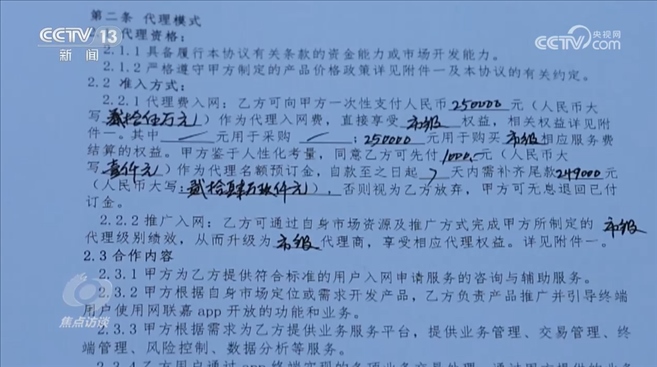 CCTV 13
新闻
央视网
CCTV.com
第二条 代理模式
代理资格：
2.1.1 具备履行本协议有关条款的资金能力或市场开发能力。
2.1.2 严格遵守甲方制定的产品价格政策详见附件一及本协议的有关约定。
2.2 准入方式：
2.2.1 代理费入网：乙方可向甲方一次性支付人民币250000元（人民币大
写贰拾伍万元）作为代理入网费，直接享受 市级 权益，相关权益详见附
件一。其中 ／ 元用于采购 ／ ；250000 元用于购买 市级 相应服务费
结算的权益。甲方鉴于人性化考量，同意乙方可先付1000元（人民币大
写壹仟元）作为代理名额预订金，自款至之日起 7 天内需补齐尾款249000元
（人民币大写：贰拾肆万玖仟元），否则视为乙方放弃，甲方可无息退回已付
订金。
2.2.2 推广入网：乙方可通过自身市场资源及推广方式完成甲方所制定的 市级
代理级别绩效，从而升级为 市级 代理商，享受相应代理权益。详见附件一。
2.3 合作内容
2.3.1 甲方为乙方提供符合标准的用户入网申请服务的咨询与辅助服务。
2.3.2 甲方根据自身市场定位或需求开发产品，乙方负责产品推广并引导终端
用户使用网联嘉 app 开放的功能和业务。
2.3.3 甲方根据需求为乙方提供业务服务平台，提供业务管理、交易管理、终
端管理、风险控制、数据分析等服务。
焦点访谈